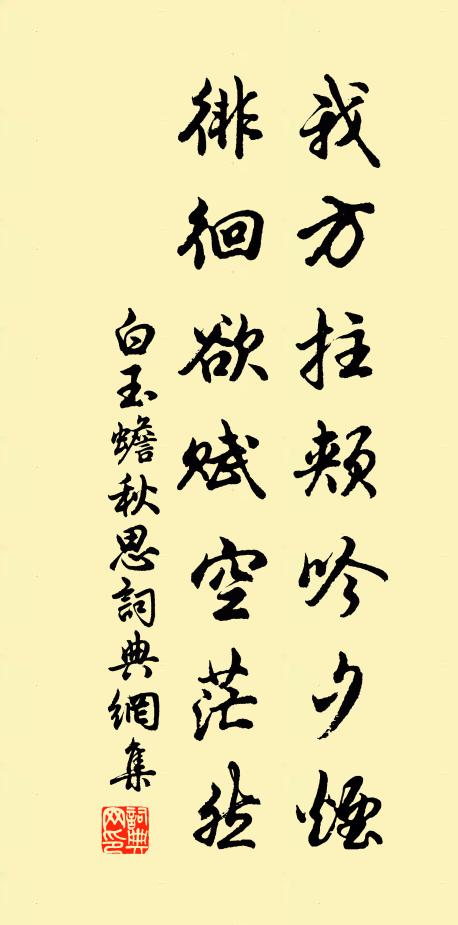 我方拄頰吟夕煙
徘徊欲賦空茫然
白玉蟾秋思詞典網集
詞典網印